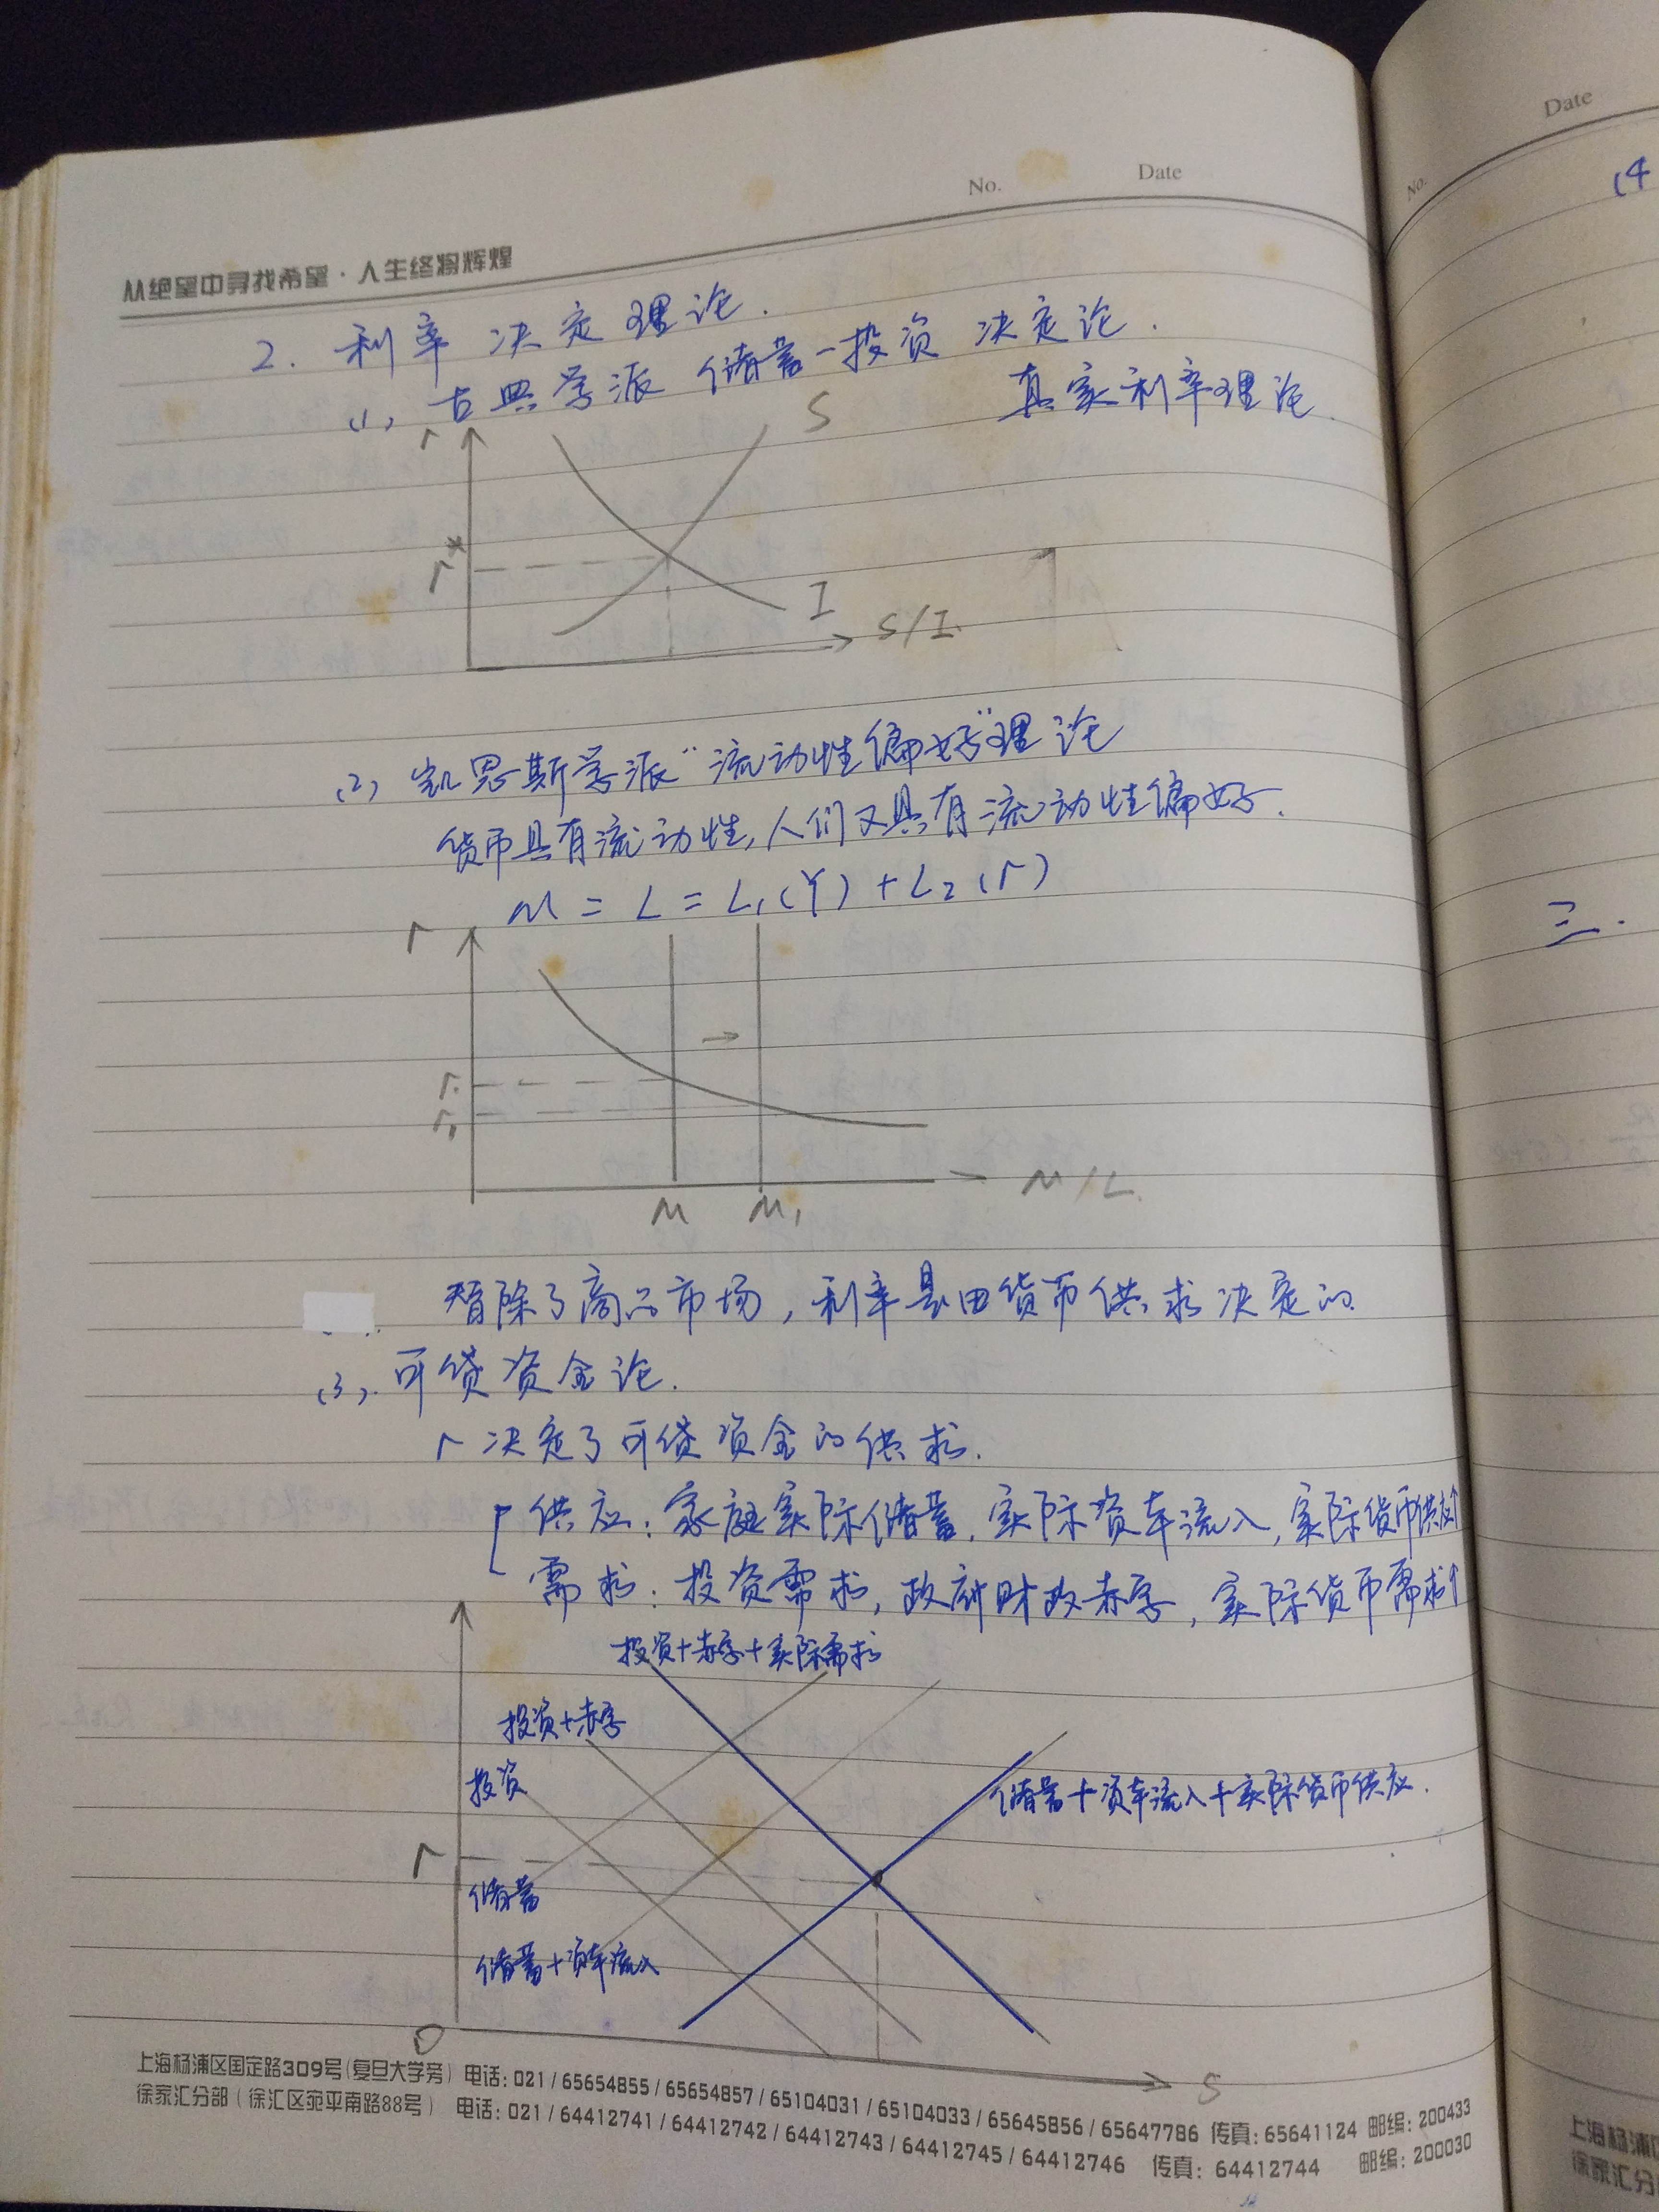 No.
Date
从绝望中寻找希望·人生终将辉煌
2. 利率 决定 理论.
(1) 古典学派 储蓄-投资 决定论.
真实利率理论
r
S
r*
I
S/I
(2) 凯恩斯学派“流动性偏好”理论
货币具有流动性,人们又具有流动性偏好.
M = L = L₁(Y) + L₂(r)
r
r.
r₁
M
M₁
M/L
暂除了商品市场,利率是由货币供求决定的
(3). 可贷资金论.
r 决定了可贷资金的供求.
供应: 家庭实际储蓄, 实际资本流入, 实际货币供应↑
需求: 投资需求, 政府财政赤字, 实际货币需求↑
投资+赤字+实际需求
投资+赤字
投资
储蓄+资本流入+实际货币供应.
r
储蓄
储蓄+资本流入
O
S
上海杨浦区国定路309号(复旦大学旁) 电话: 021 / 65654855 / 65654857 / 65104031 / 65104033 / 65645856 / 65647786 传真: 65641124 邮编: 200433
徐家汇分部 ( 徐汇区宛平南路88号 ) 电话: 021 / 64412741 / 64412742 / 64412743 / 64412745 / 64412746 传真: 64412744 邮编: 200030
No.
Date
(4
三.
上海杨浦
徐家汇分